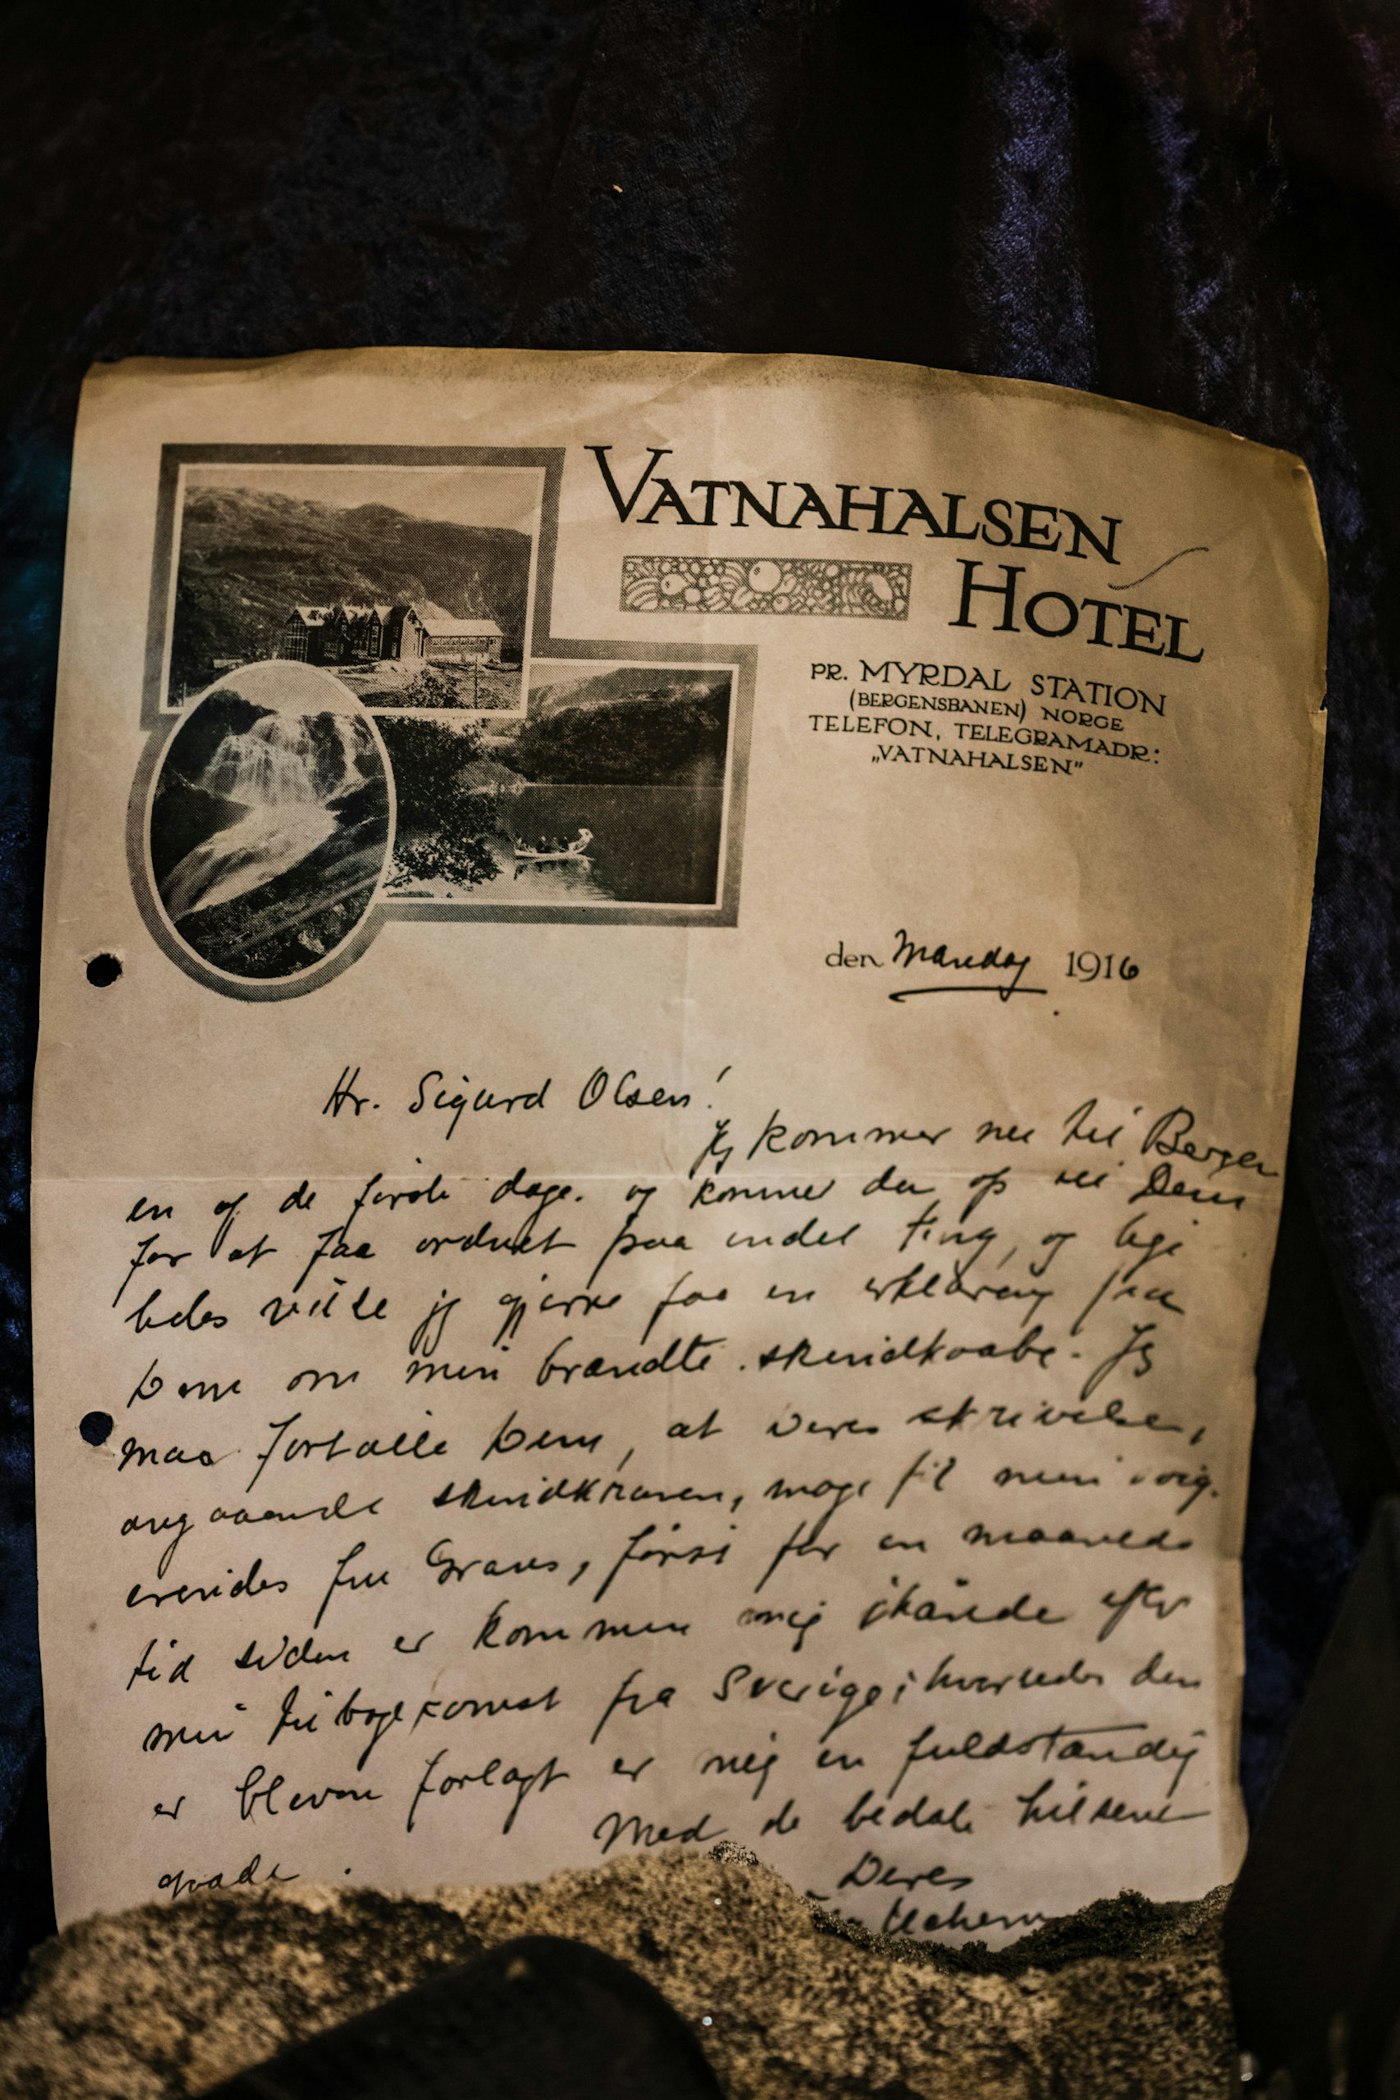 VATNAHALSEN
HOTEL
PR. MYRDAL STATION
(BERGENSBANEN) NORGE
TELEFON, TELEGRAMADR:
„VATNAHALSEN"
den Mandag 1916
Hr. Sigurd Olsen!
Jeg kommer nu til Bergen
en af de første dage. og kommer da op til Dem
for at faa ordnet paa endel ting, og lige
ledes vilde jeg gjerne faa en erklæring fra
Dem om min brændte skindkaabe. Jeg
maa fortælle Dem, at Deres skrivelse,
angaaende skindkraven, til min
fru først for en maaneds
tid siden er kommen mig ihænde efter
min tilbagekomst fra Sverige; hvorledes den
er bleven forlagt er mig en fuldstændig
gaade.
Med de bedste hilsener
Deres